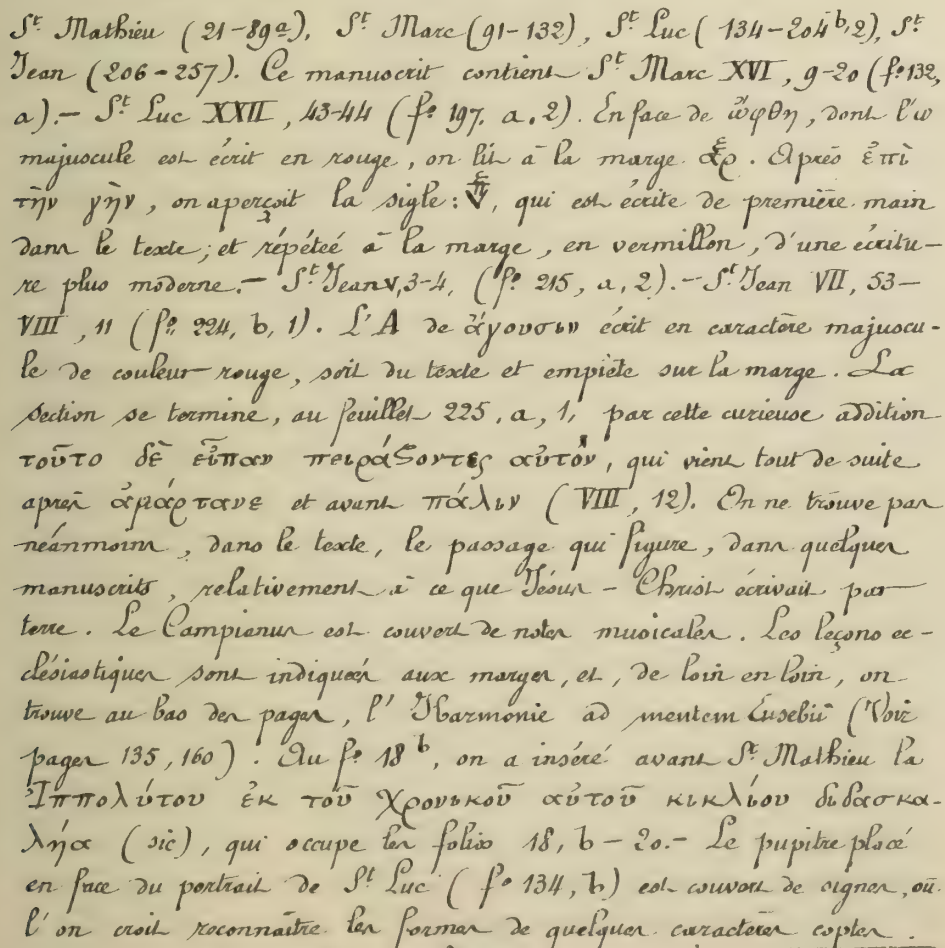 St Mathieu (21-89a), St Marc (91-132), St Luc (134-204b,2), St
Jean (206-257). Ce manuscrit contient St Marc XVI, 9-20 (fo 132,
a).- St Luc XXII, 43-44 (fo 197. a. 2). En face de ὤφθη, dont l'ω
majuscule est écrit en rouge, on lit à la marge ἀρ. Après ἐπὶ
τὴν γὴν, on aperçoit la sigle:, qui est écrite de première main
dans le texte; et répéteé à la marge, en vermillon, d'une écritu-
re plus moderne.- St Jean V, 3-4, (fo 215, a, 2).- St Jean VII, 53-
VIII, 11 (fo 224, b, 1). L'A de ἄγουσιν écrit en caractère majuscu-
le de couleur rouge, soit du texte et empiète sur la marge. La
section se termine, au feuillet 225, a, 1, par cette curieuse addition
τοῦτο δὲ εἶπαν πειράζοντες αὐτόν, qui vient tout de suite
après ἁμάρτανε et avant πάλιν (VIII, 12). On ne trouve pas
néanmoins, dans le texte, le passage qui figure, dans quelques
manuscrits, relativement à ce que Jésus-Christ écrivait par
terre. Le Campianus est couvert de notes musicales. Les leçons ec-
clésiastiques sont indiqueés aux marges, et, de loin en loin, on
trouve au bas des pages, l'Harmonie ad mentem Eusebii (Voir
pages 135, 160). Au fo 18b, on a inséré avant St Mathieu la
Ἱππολύτου ἐκ τοῦ Χρονικοῦ αὐτοῦ κικλίου διδασκα-
λήα (sic), qui occupe les folios 18, b-20.- Le pupitre placé
en face du portrait de St Luc (fo 134, b) est couvert de signes, où
l'on croit reconnaître les formes de quelques caractères coptes.